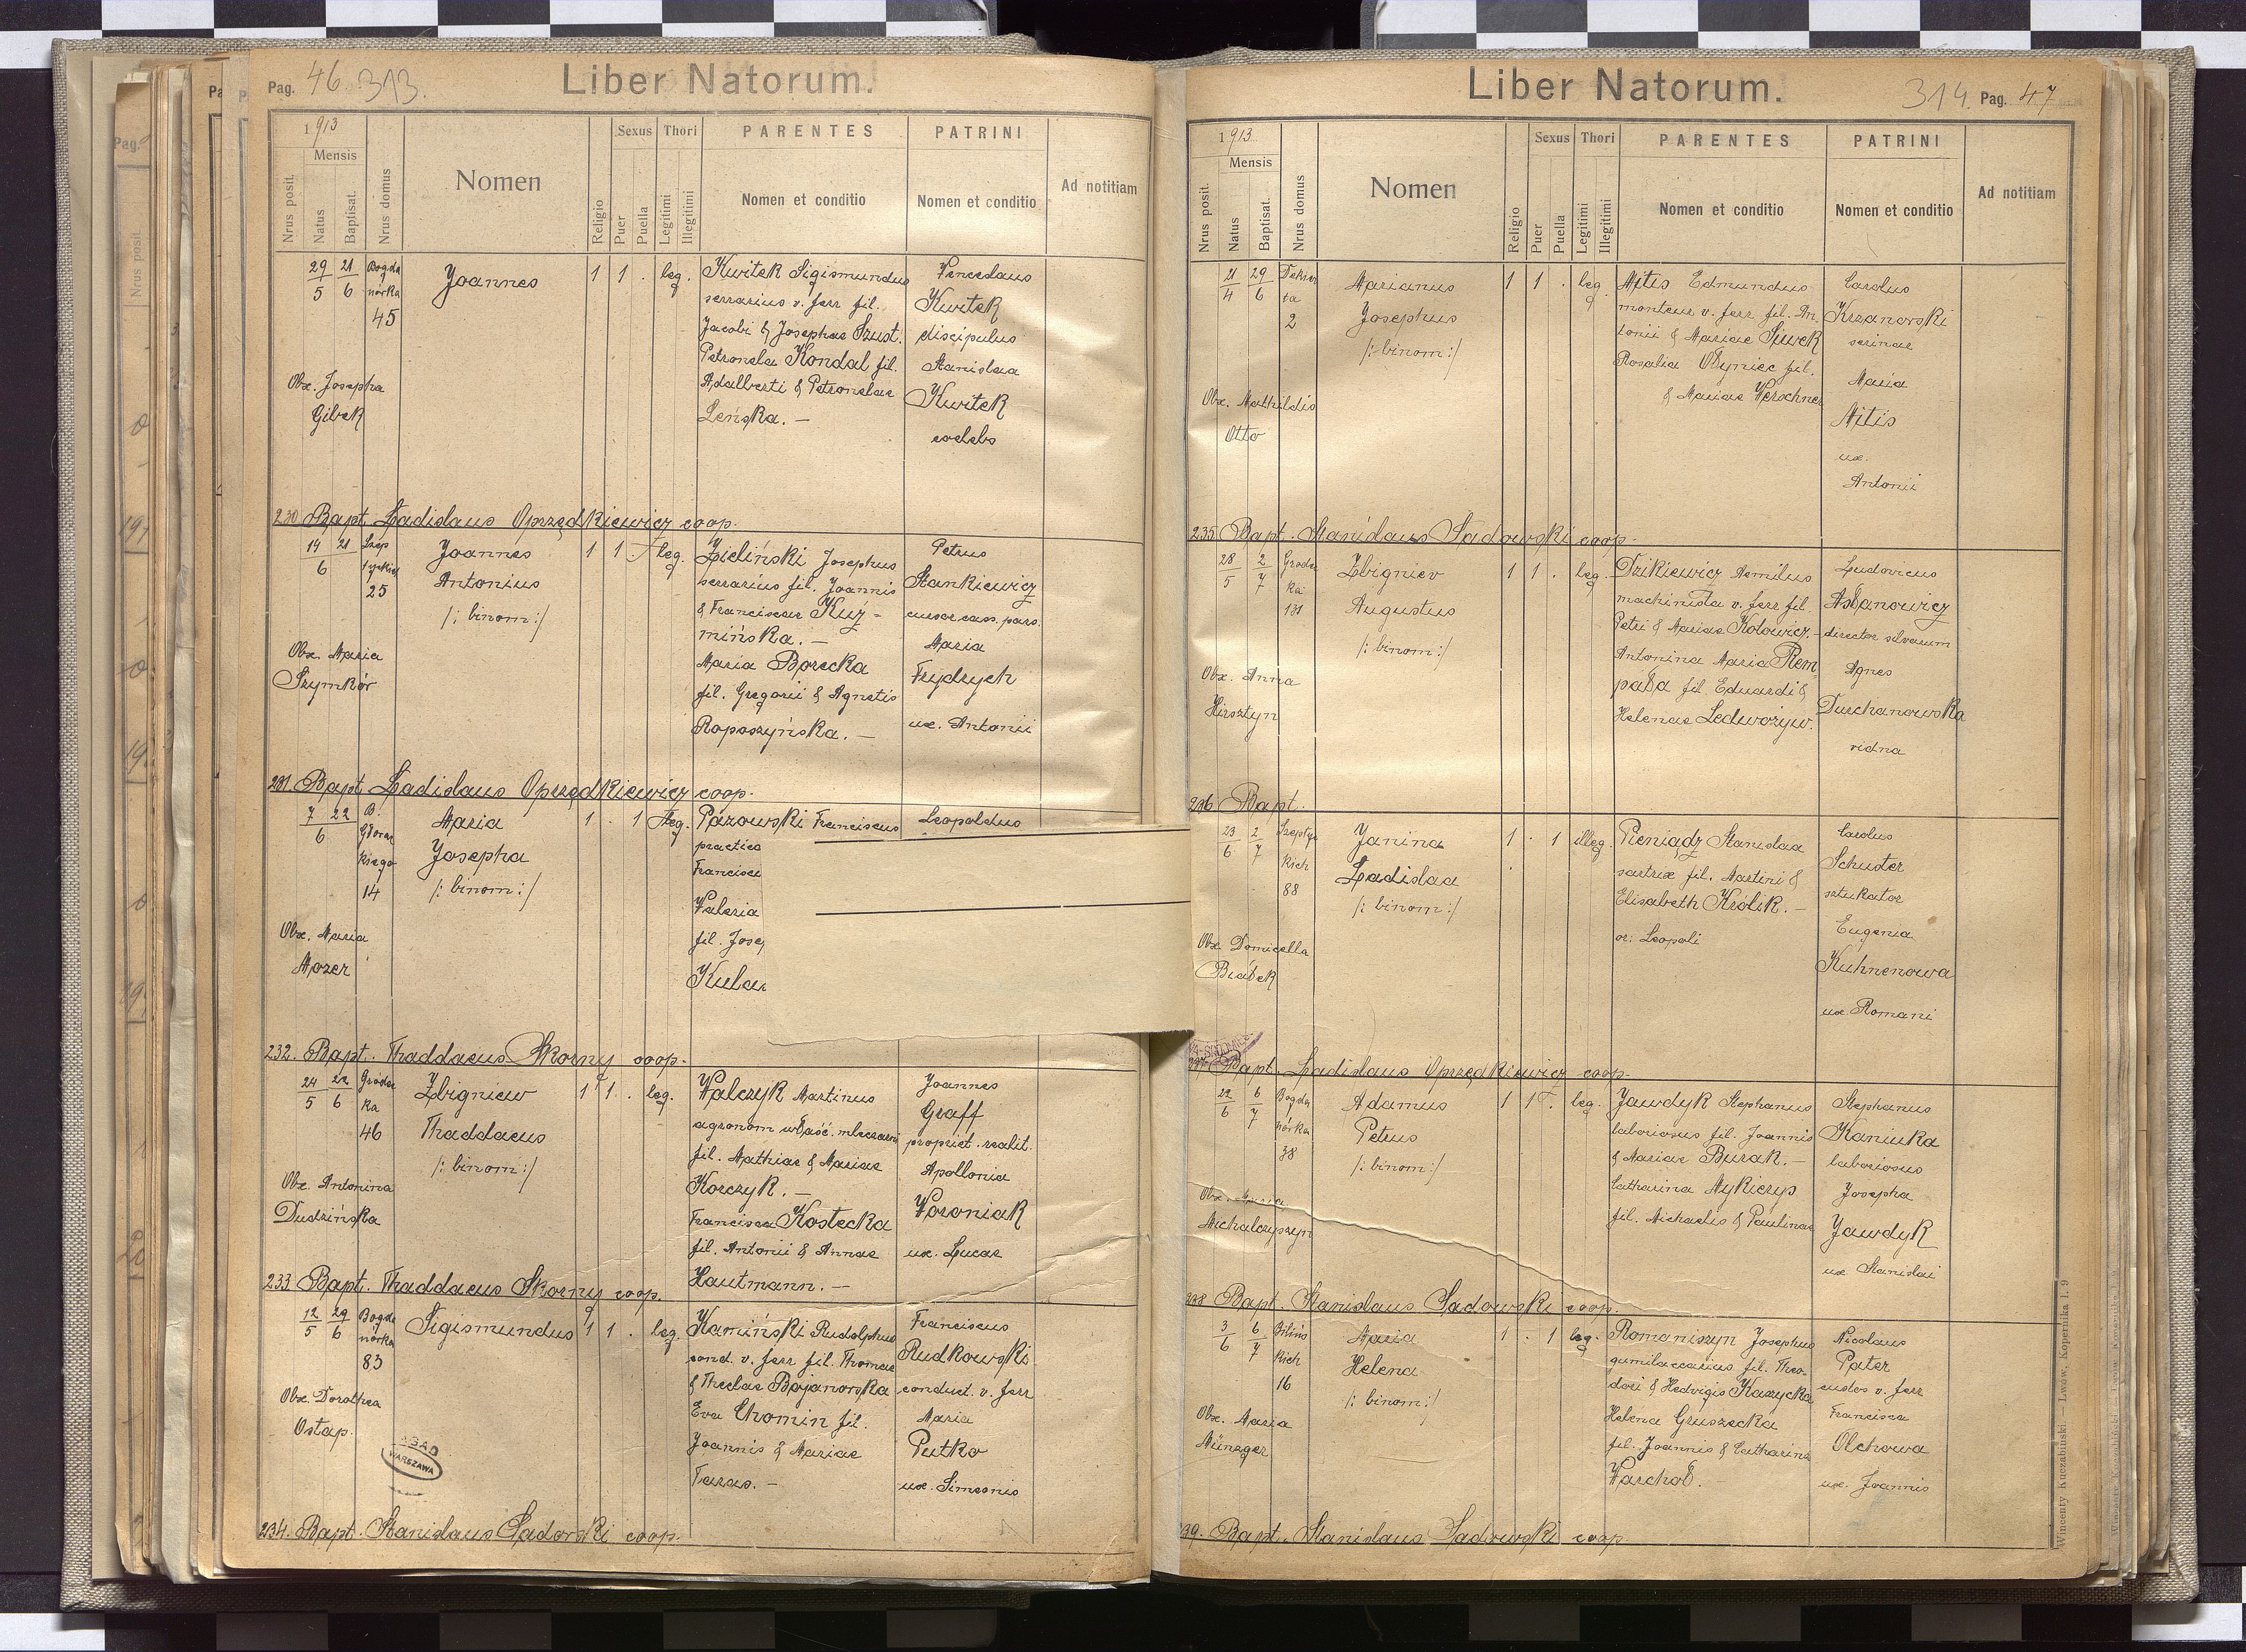 Pag. 46 313.
Liber Natorum.
1913
Mensis
Nrus posit.
Natus
Baptisat.
Nrus domus
Nomen
Religio
Sexus
Puer
Puella
Thori
Legitimi
Illegitimi
PARENTES
Nomen et conditio
PATRINI
Nomen et conditio
Ad notitiam
29 21 Bogda
5 6 nórka
45
Obx. Josepha
Gibek
Joannes
1 1 . leg.
Kwitek Sigismundus
serrarius v. ferr fil.
Jacobi & Josephae Szust.
Petronela Kondal fil.
Adalberti & Petronelae
Leńska. —
Venceslaus
Kwitek
discipulus
Stanislaa
Kwitek
coelebs
230 Bapt. Ladislaus Oprzędkiewicz coop.
14 21 Szep
6 tyckich
25
Obx. Maria
Szymkór
Joannes
Antonius
/: binom :/
1 1 . leg.
Zieliński Josephus
serrarius fil. Joannis
& Franciscae Kuź-
mińska. —
Maria Borecka
fil. Gregorii & Agnetis
Roposzyńska. —
Petrus
Stankiewicz
cursor cass. pars.
Maria
Frydrych
ux. Antonii
231. Bapt. Ladislaus Oprzędkiewicz coop.
7 22 B.
6 Głowac
kiego
14
Obx. Maria
Mozer
Maria
Josepha
/: binom :/
1 . 1 leg.
Pazowski Franciscus
practica
Francisci
Valeria
fil. Jose
Kula
Leopoldus
232. Bapt. Thaddaeus Skorny coop.
24 22 Grodec
5 6 ka
46
Obx. Antonina
Dudzińska
Zbigniew
Thaddaeus
/: binom :/
1 1 . leg.
Walczyk Martinus
agronom właść. mleczarni
fil. Mathiae & Mariae
Korczyk. —
Francisca Kostecka
fil. Antonii & Annae
Hautmann. —
Joannes
Graff
propriet. realit.
Apollonia
Woroniak
ux. Lucae
233. Bapt. Thaddaeus Skorny coop.
12 29 Bogda
5 6 nórka
83
Obx. Dorothea
Ostap.
Sigismundus
1 1 . leg.
Kamiński Rudolphus
cond. v. ferr fil. Thomae
& Theclae Bojanowska
Eva Chomin fil.
Joannis & Mariae
Taras. —
Franciscus
Rudkowski
conduct. v. ferr
Maria
Putko
ux. Simeonis
WARSZAWA
234. Bapt. Stanislaus Sadowski coop.
Liber Natorum.
314. Pag. 47
1913
Mensis
Nrus posit.
Natus
Baptisat.
Nrus domus
Nomen
Religio
Sexus
Puer
Puella
Thori
Legitimi
Illegitimi
PARENTES
Nomen et conditio
PATRINI
Nomen et conditio
Ad notitiam
21 29
4 6 ta
2
Obx. Mathildis
Otto
Marianus
Josephus
/: binom :/
1 1 . leg.
Mitis Edmundus
monteur v. ferr fil. An
tonii & Mariae Siwek
Rosalia Ołyniec fil.
& Mariae Werschner
Carolus
Krzanowski
Maria
Mitis
ux.
Antonii
235. Bapt. Stanislaus Sadowski coop.
28 2 Grode
5 7 ka
131
Obx. Anna
Hirsztyn
Zbigniev
Augustus
/: binom :/
1 1 . leg.
Dzikiewicz Aemilus
machinista v. ferr fil.
Petri & Mariae Kotowicz. —
Antonina Maria Rem
pała fil. Eduardi &
Helenae Ledwożyw.
Ludovicus
Asłanowicz
director silvarum
Agnes
Duchanowska
vidna
236 Bapt.
23 2 Szeptyc
6 7 kich
88
Obx. Domicella
Białek
Janina
Ladislaa
/: binom :/
1 . 1 illeg.
Pieniądz Stanislaa
sartrix fil. Martini &
Elisabeth Krolik. —
or: Leopoli
Carolus
Schuster
sztukator
Eugenia
Kuhnenowa
ux. Romani
237. Bapt. Ladislaus Oprzędkiewicz coop.
22 6 Bogda
6 7 nórka
38
Obx. Maria
Michalczyszyn
Adamus
Petrus
/: binom :/
1 1 . leg.
Jawdyk Stephanus
laboriosus fil. Joannis
& Mariae Burak. —
Catharina Mykiczyp
fil. Michaelis & Paulinae
Stephanus
Kaniuka
laboriosus
Josepha
Jawdyk
ux Stanislai
238 Bapt. Stanislaus Sadowski coop.
3 6 Bilińs
6 7 kich
16
Obx. Maria
Münzger
Maria
Helena
/: binom :/
1 . 1 leg.
Romaniszyn Josephus
fil. Theo-
dori & Hedvigis Kaszycka
Helena Gruszecka
fil. Joannis & Catharina
Warchoł. —
Nicolaus
Pater
custos v. ferr
Francisca
Olchowa
ux. Joannis
239. Bapt. Stanislaus Sadowski coop.
Wincenty Kuczabiński. — Lwów, Kopernika l. 9